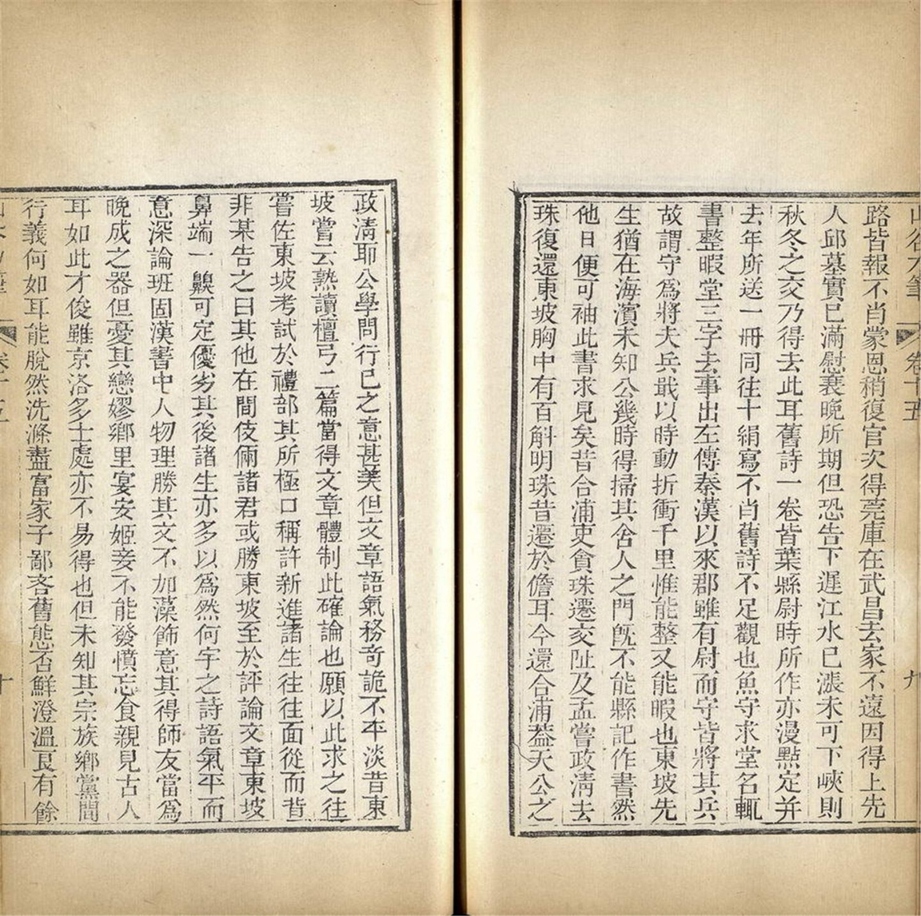 九
路皆報不肖蒙恩稍復官次得莞庫在武昌去家不遠因得上先
人邱墓實已滿慰衰晚所期但恐告下遲江水已漲未可下峽則
秋冬之交乃得去此耳舊詩一卷皆葉縣尉時所作亦漫點定并
去年所送一冊同往十絹寫不肖舊詩不足觀也魚守求堂名輒
書整暇堂三字去事出左傳秦漢以來郡雖有尉而守皆將其兵
故謂守爲將夫兵戢以時動折衝千里惟能整又能暇也東坡先
生猶在海濱未知公幾時得掃其舍人之門旣不能縣記作書然
他日便可袖此書求見矣昔合浦吏貪珠遷交阯及孟嘗政淸去
珠復還東坡胸中有百斛明珠昔遷於儋耳今還合浦葢天公之
政淸耶公學問行已之意甚美但文章語氣務奇詭不平淡昔東
坡嘗云熟讀檀弓二篇當得文章體制此確論也願以此求之往
嘗佐東坡考試於禮部其所極口稱許新進諸生往往面從而背
非某告之曰其他在間伎倆諸君或勝東坡至於評論文章東坡
鼻端一齅可定優劣其後諸生亦多以爲然何宇之詩語氣平而
意深論班固漢書中人物理勝其文不加藻飾意其得師友當爲
晚成之器但憂其戀嫪鄉里宴安姬妾不能發憤忘食親見古人
耳如此才俊雖京洛多士處亦不易得也但未知其宗族鄉黨間
行義何如耳能脫然洗滌盡富家子鄙吝舊態否鮮澄溫良有餘
十